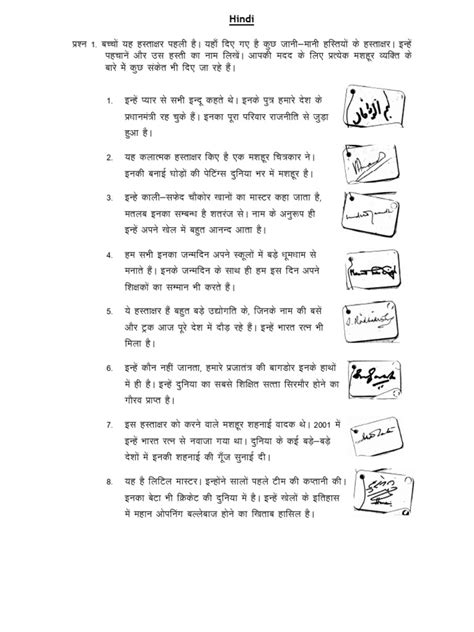 Hindi
प्रश्न 1. बच्चों यह हस्ताक्षर पहली है। यहाँ दिए गए है कुछ जानी–मानी हस्तियों के हस्ताक्षर। इन्हें
पहचानें और उस हस्ती का नाम लिखें। आपकी मदद के लिए प्रत्येक मशहूर व्यक्ति के
बारे में कुछ संकेत भी दिए जा रहे हैं।
1. इन्हें प्यार से सभी इन्दू कहते थे। इनके पुत्र हमारे देश के
प्रधानमंत्री रह चुके हैं। इनका पूरा परिवार राजनीति से जुड़ा
हुआ है।
2. यह कलात्मक हस्ताक्षर किए है एक मशहूर चित्रकार ने।
इनकी बनाई घोड़ो की पेंटिंग्स दुनिया भर में मशहूर है।
3. इन्हे काली–सफेद चौकोर खानों का मास्टर कहा जाता है,
मतलब इनका सम्बन्ध है शतरंज से। नाम के अनुरूप ही
इन्हें अपने खेल में बहुत आनन्द आता है।
4. हम सभी इनका जन्मदिन अपने स्कूलों में बड़े धूमधाम से
मनाते हैं। इनके जन्मदिन के साथ ही हम इस दिन अपने
शिक्षकों का सम्मान भी करते हैं।
5. ये हस्ताक्षर हैं बहुत बड़े उद्योगति के, जिनके नाम की बसें
और ट्रक आज पूरे देश में दौड़ रहे हैं। इन्हें भारत रत्न भी
मिला है।
6. इन्हें कौन नहीं जानता, हमारे प्रजातंत्र की बागडोर इनके हाथों
में ही है। इन्हें दुनिया का सबसे शिक्षित सत्ता सिरमौर होने का
गौरव प्राप्त है।
7. इस हस्ताक्षर को करने वाले मशहूर शहनाई वादक थे। 2001 में
इन्हें भारत रत्न से नवाजा गया था। दुनिया के कई बड़े–बड़े
देशों में इनकी शहनाई की गूँज सुनाई दी।
8. यह है लिटिल मास्टर। इन्होंने सालों पहले टीम की कप्तानी की।
इनका बेटा भी क्रिकेट की दुनिया में है। इन्हें खेलों के इतिहास
में महान ओपनिंग बल्लेबाज होने का खिताब हासिल है।